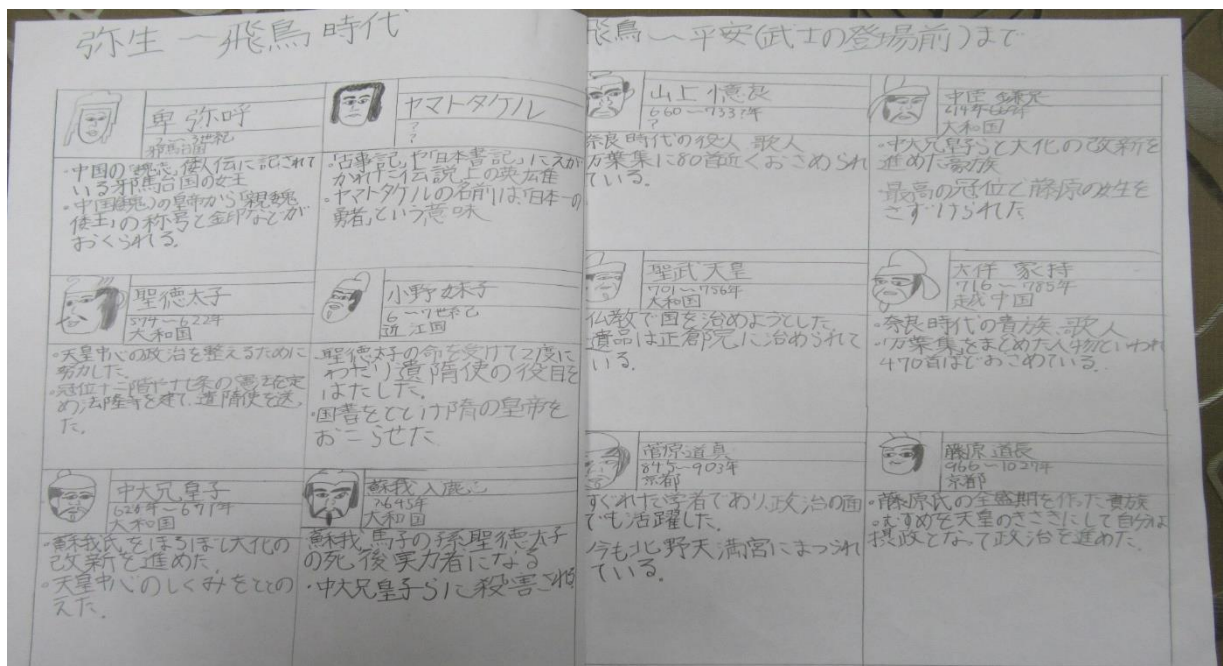 弥生～飛鳥時代
卑弥呼
?～3世紀
邪馬台国
・中国の「魏志」倭人伝に記されて
いる邪馬台国の女王
・中国(魏)の皇帝から「親魏
倭王」の称号と金印などが
おくられる。
ヤマトタケル
?
?
・「古事記」や「日本書記」にえが
かれた伝説上の英雄
・ヤマトタケルの名前は、「日本一の
勇者」という意味
聖徳太子
574～622年
大和国
・天皇中心の政治を整えるために
努力した。
・冠位十二階や十七条の憲法を定
め法隆寺を建て、遣隋使を送っ
た。
小野妹子
6～7世紀
近江国
・聖徳太子の命を受けて2度に
わたり遣隋使の役目を
はたした。
・国書をとどけ隋の皇帝を
おこらせた
中大兄皇子
626年～671年
大和国
・蘇我氏をほろぼし大化の
改新を進めた。
・天皇中心のしくみをととの
えた。
蘇我入鹿
?～645年
大和国
・蘇我馬子の孫聖徳太子
の死後実力者になる
・中大兄皇子らに殺害され
飛鳥～平安(武士の登場前)まで
山上憶良
660～733?年
?
奈良時代の役人 歌人
万葉集に80首近くおさめられ
ている。
中臣鎌足
614年～669年
大和国
・中大兄皇子らと大化の改新を
進めた豪族
・最高の冠位で藤原の姓を
さずけられた
聖武天皇
701～756年
大和国
仏教で国を治めようとした
遺品は正倉院に治められて
いる。
大伴家持
716～785年
越中国
・奈良時代の貴族、歌人
・「万葉集」をまとめた人物といわれ
470首ほどおさめている。
菅原道真
845～903年
京都
すぐれた学者であり、政治の面
でも活躍した。
今も北野天満宮にまつられ
ている。
藤原道長
966～1027年
京都
・藤原氏の全盛期を作った貴族
・むすめを天皇のきさきにして自分は
摂政となって政治を進めた。